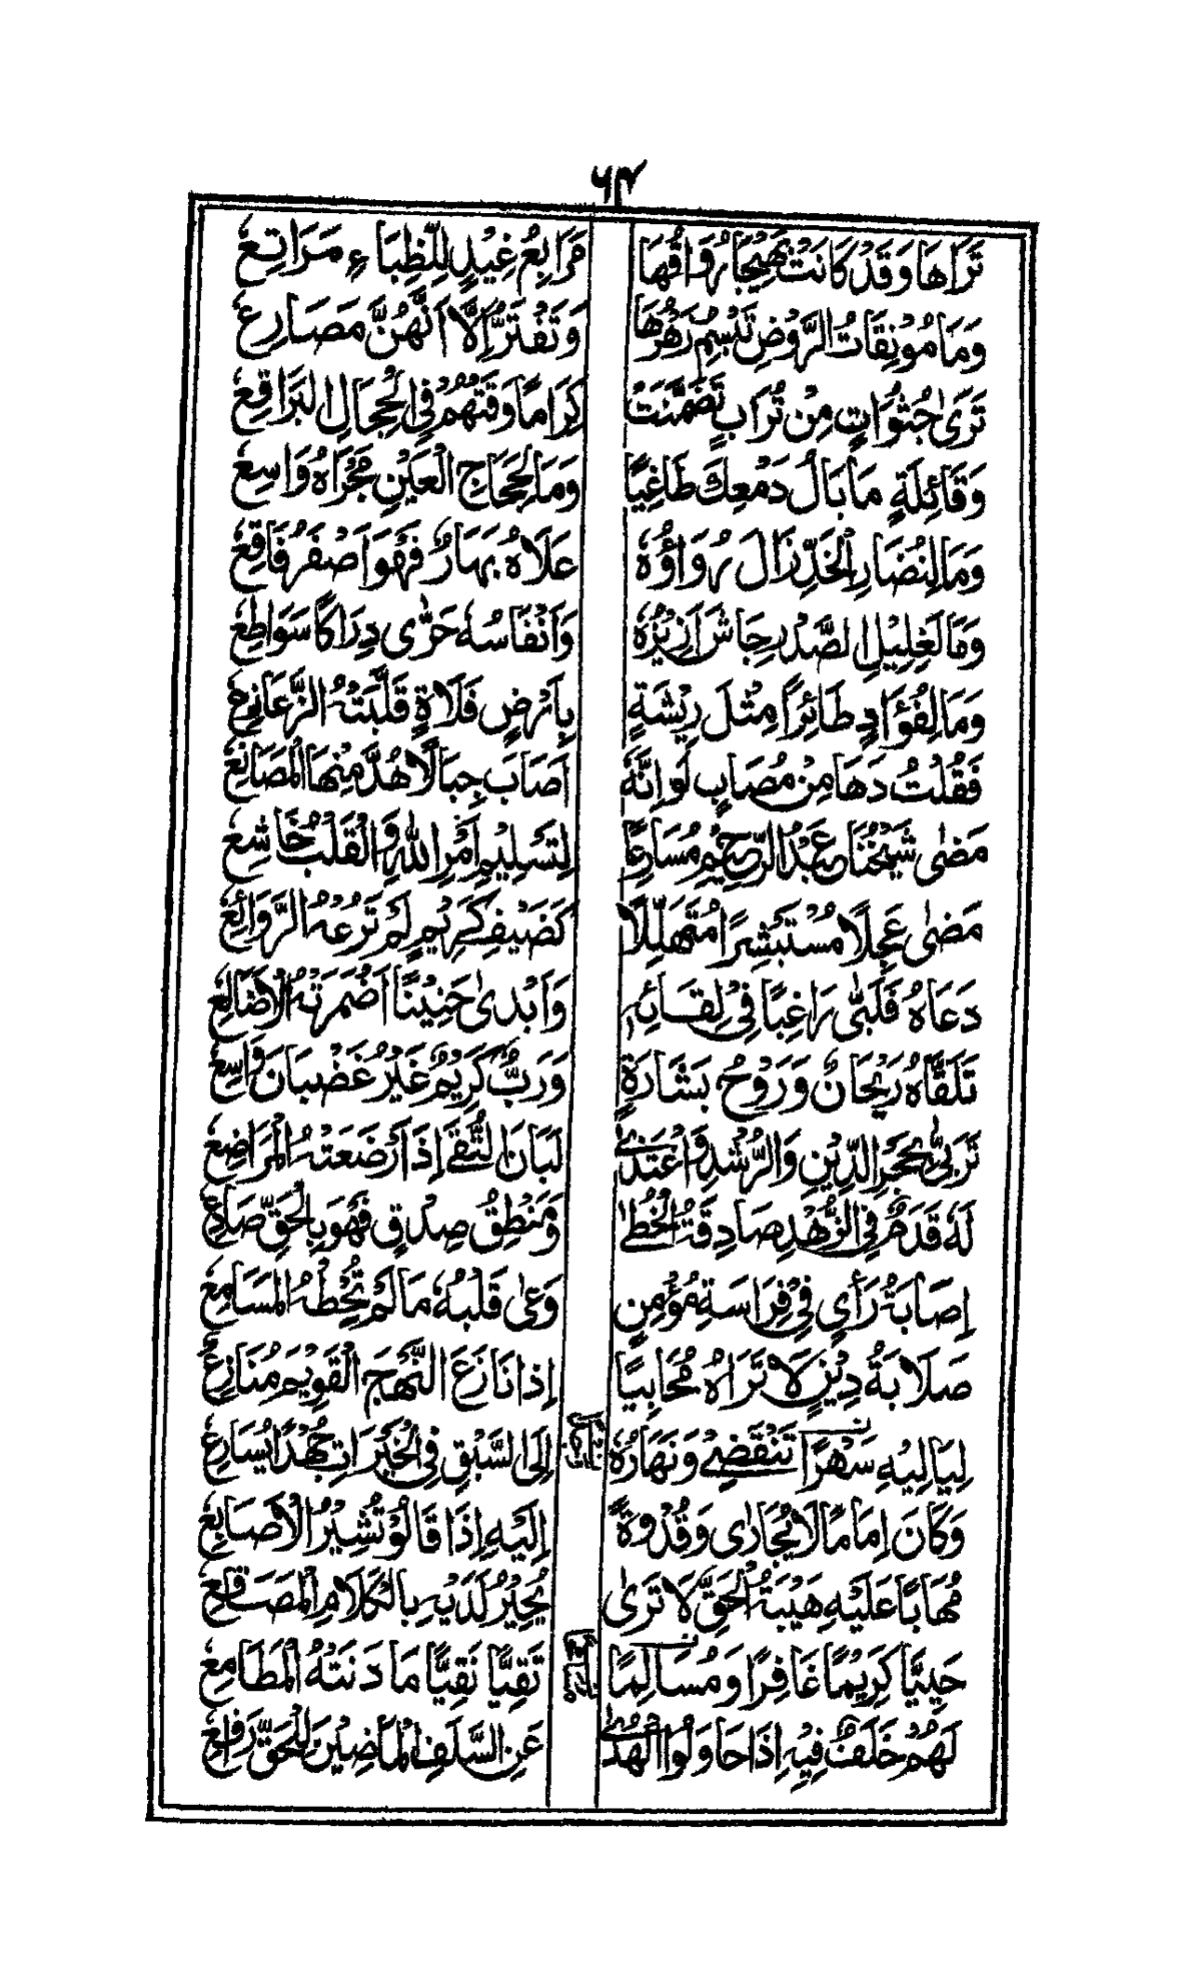 ٦٣
تَرَاهَا وَقَدْ كَانَتْ بَهِيْجًا رُوَاقُهَا مَرَابِعُ غِيْدٍ لِلظِّبَاءِ مَرَاتِعُ
وَمَا مُونِقَاتُ الرَّوْضِ تَبْسِمُ زَهْرُهَا وَتَفْتَرُّ إِلَّا اَنَّهُنَّ مَصَارِعُ
تَرَىٰ جُثْوَاتٍ مِنْ تُرَابٍ تَضَمَّنَتْ كِرَامًا وَقَتْهُمْ فِي الْحِجَالِ الْبَرَاقِعُ
وَقَائِلَةٍ مَا بَالُ دَمْعِكَ طَاغِيًا وَمَا لِحَجَاجِ الْعَيْنِ مَجْرَاهُ وَاسِعُ
وَمَا لِنُضَارِ الْخَدِّ زَالَ رُوَاؤُهُ عَلَاهُ بَهَارٌ فَهُوَ اَصْفَرُ فَاقِعُ
وَمَا لَغَلِيْلِ الصَّدْرِ جَاشَ اَزِيْزُهُ وَاَنْفَاسُهُ حَرَّى دِرَاكًا سَوَاطِعُ
وَمَا لِفُؤَادٍ طَائِرًا مِثْلَ رِيْشَةٍ بِاَرْضٍ فَلَاةٍ قَلَّبَتْهُ الزَّعَازِعُ
فَقُلْتُ دَهَا مِنْ مُصَابٍ لَوِ انَّهُ اَصَابَ جِبَالًا هُدَّ مِنْهَا الْمَصَانِعُ
مَضٰى شَيْخُنَا عَبْدُ الرَّحِيْمِ مُسَارِعًا لِتَسْلِيْمِ اَمْرِ اللهِ وَالْقَلْبُ خَاشِعُ
مَضٰى عَجِلًا مُسْتَبْشِرًا مُتَهَلِّلًا كَضَيْفِ كَرِيْمٍ لَمْ تَرُعْهُ الرَّوَائِعُ
دَعَاهُ فَلَبّٰى رَاغِبًا فِيْ لِقَائِهِ وَاَبْدىٰ حَنِيْنًا اَضْمَرَتْهُ الْاَضَالِعُ
تَلَقَّاهُ رَيْحَانٌ وَرَوْحُ بَشَارَةٍ وَرَبٌّ كَرِيْمٌ غَيْرُ غَضْبَانَ وَاسِعُ
تَرَبّٰى بِحِجْرِ الدِّيْنِ وَالرُّشْدِ وَاغْتَذٰى لَبَانَ التُّقٰى إِذَا اَرْضَعَتْهُ الْمَرَاضِعُ
لَهٗ قَدَمٌ فِي الزُّهْدِ صَادِقَةُ الْخُطٰى وَمَنْطِقُ صِدْقٍ فَهُوَ بِالْحَقِّ صَادِعُ
إِصَابَةُ رَأْيٍ فِيْ فِرَاسَةِ مُؤْمِنٍ وَعٰى قَلْبُهٗ مَا لَمْ تُحِطْهُ الْمَسَامِعُ
صَلَابَةُ دِيْنٍ لَا تَرَاهُ مُحَابِيًا إِذَا نَازَعَ النَّهْجَ الْقَوِيْمَ مُنَازِعُ
لَيَالِيْهِ سَهْرًا تَنْقَضِيْ وَنَهَارُهُ إِلَى السَّبْقِ فِي الْخَيْرَاتِ جُهْدًا يُسَارِعُ
وَكَانَ اِمَامًا لَا يُجَارٰى وَقُدْوَةً اِلَيْهِ إِذَا قَالُوْ تُشِيْرُ الْاَصَابِعُ
مُهَابًا عَلَيْهِ هَيْبَةُ الْحَقِّ لَا تَرٰى يُحِيْرُ لَدَيْهِ بِالْكَلَامِ الْمَصَاقِعُ
حَيِيًّا كَرِيْمًا غَافِرًا وَمُسَالِمًا تَقِيًّا نَقِيًّا مَا دَنَتْهُ الْمَطَامِعُ
لَهُمْ خَلَفٌ فِيْهِ إِذَا حَاوَلُوا الْهُدٰى عَنِ السَّلَفِ الْمَاضِيْنَ لِلْحَقِّ رَافِعُ